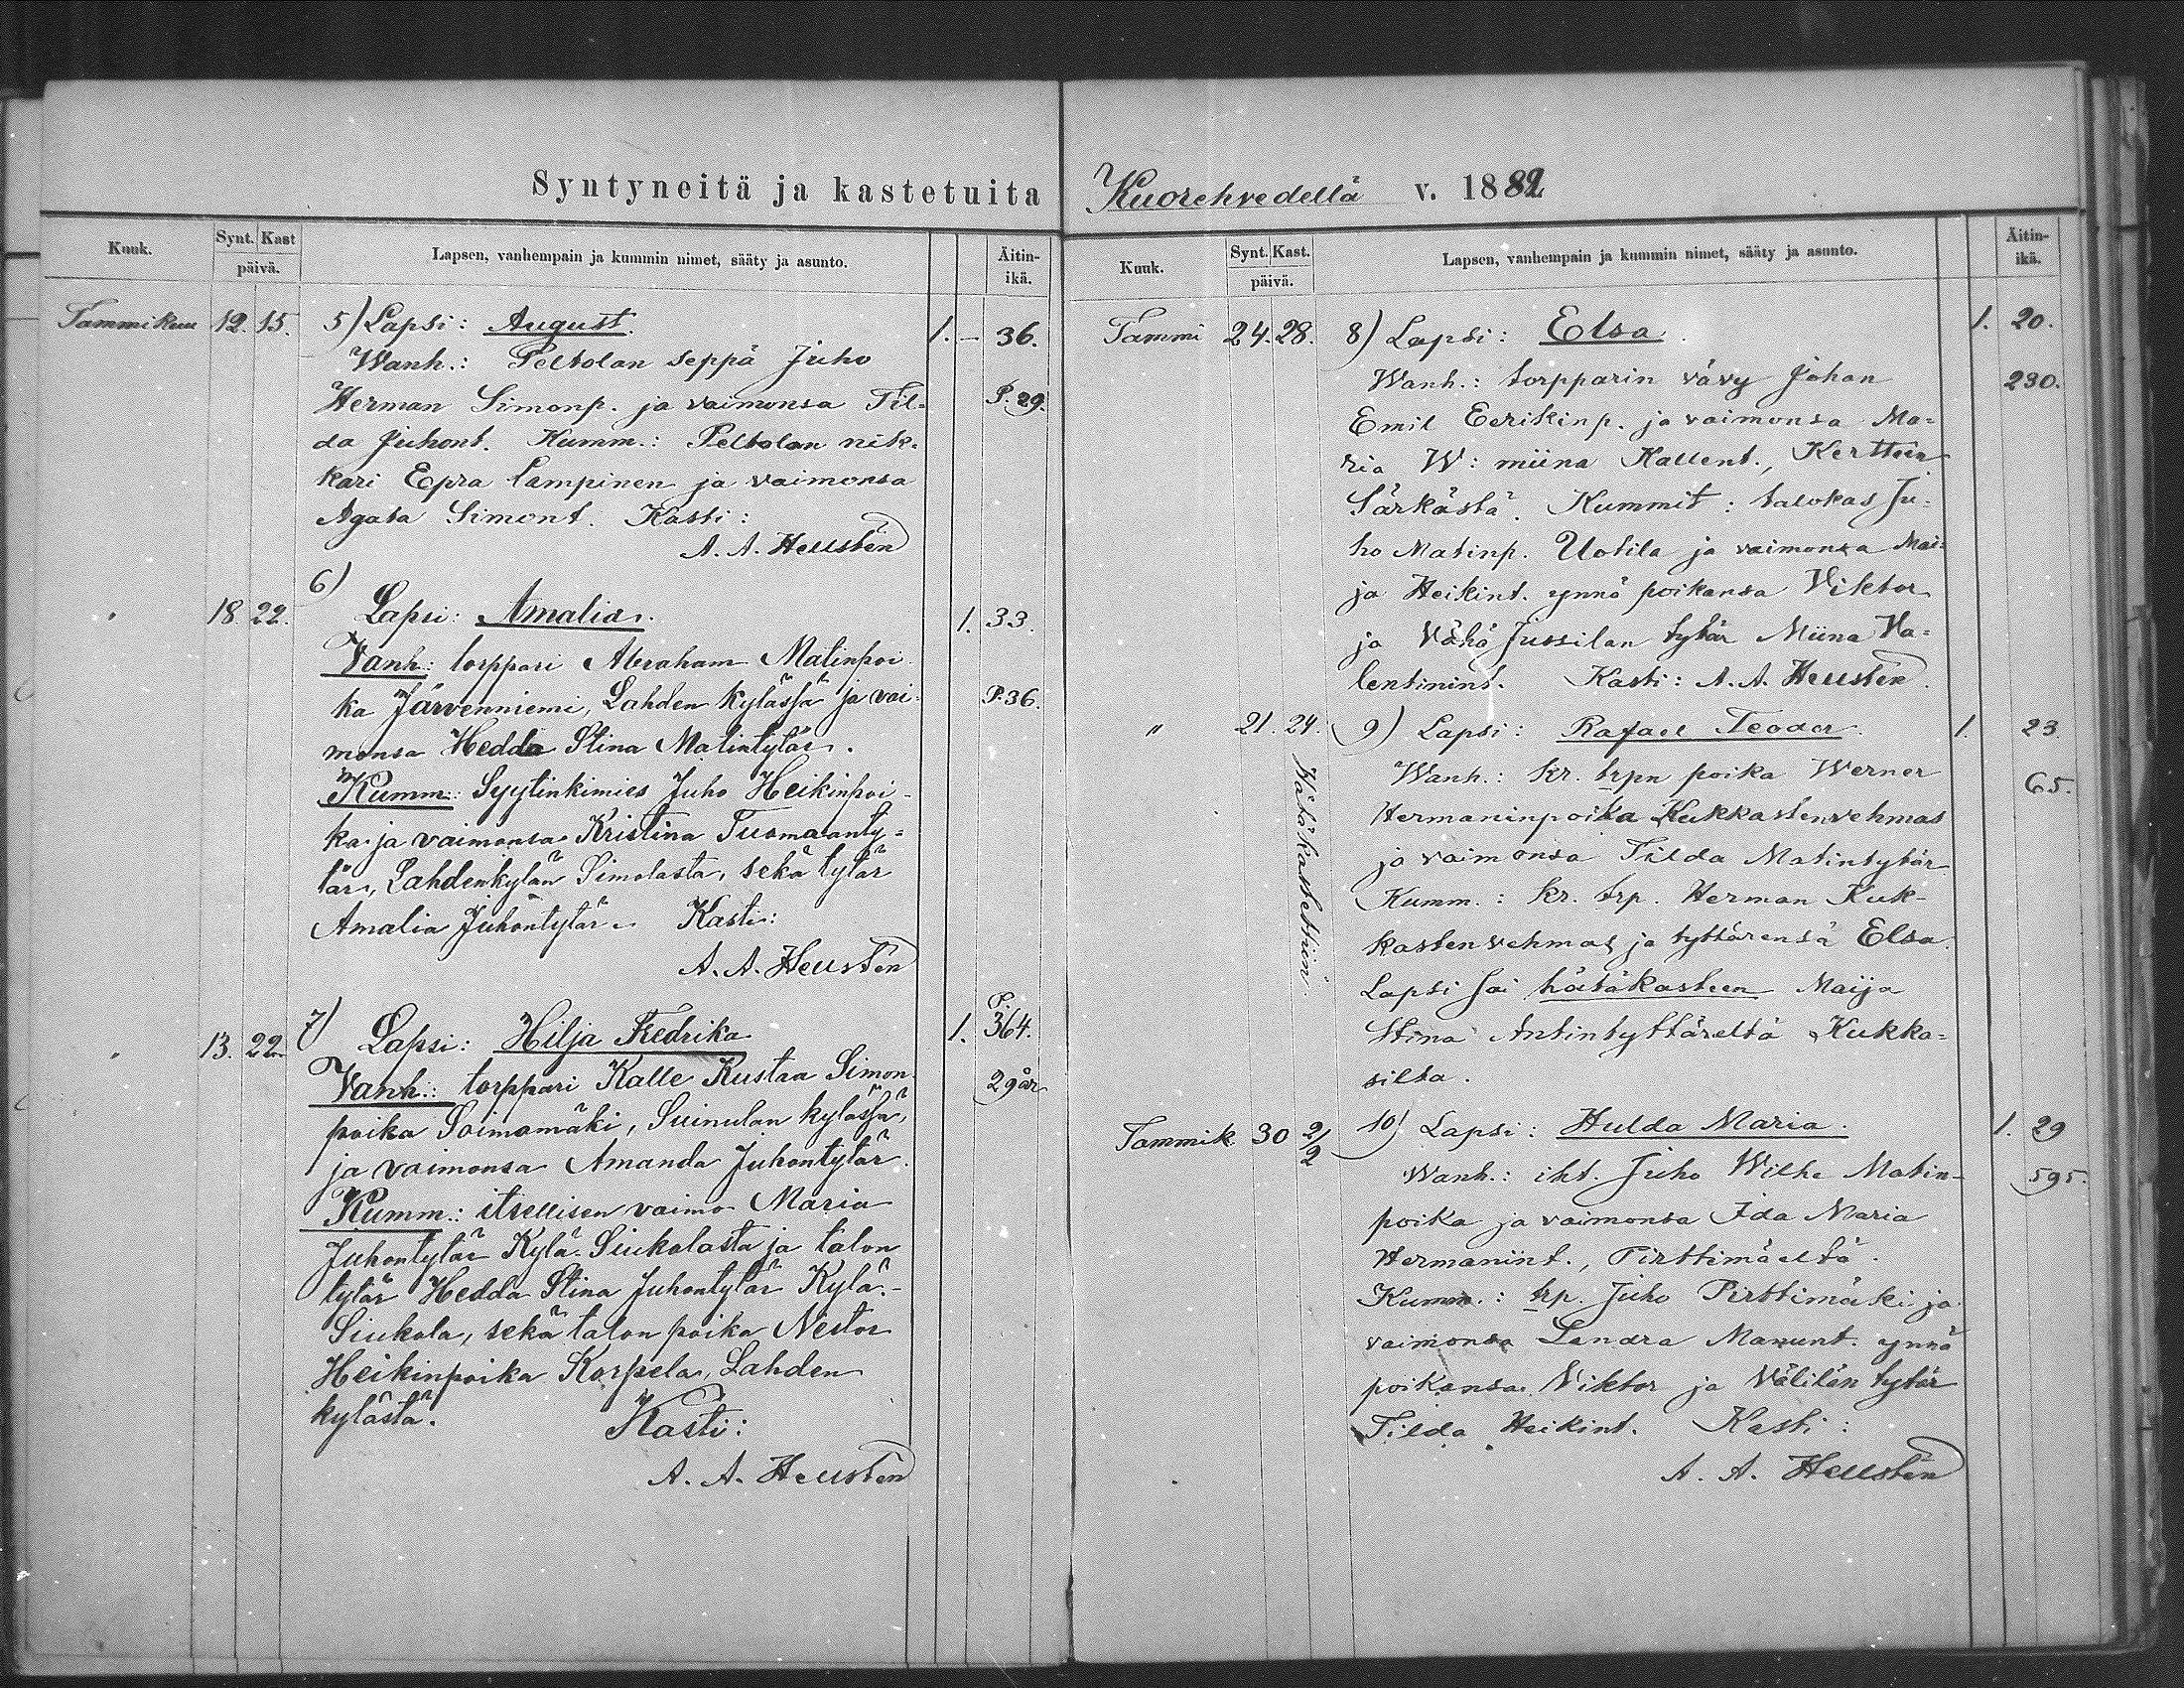 Syntyneitä ja kastetuita
Kuuk. Synt. Kast päivä. Lapsen, vanhempain ja kummin nimet, sääty ja asunto. Äitin-ikä.
Tammikuu 12. 15. 5) Lapsi: August. 1. – 36.
Wanh.: Peltolan seppä Juho
Herman Simonp. ja vaimonsa Til= P. 29.
da Juhont. Kumm.: Peltolan nik=
kari Epra Lampinen ja vaimonsa
Agata Simont. Kasti:
A. A. Heusten
6)
" 18. 22. Lapsi: Amalia. 1. 33.
Vanh: torppari Abraham Matinpoi
ka Järvenniemi, Lahden kylässä ja vai- P. 36.
monsa Hedda Stina Matintytär.
Kumm: Syytinkimies Juho Heikinpoi-
ka ja vaimonsa Kristina Tuomaanty=
tär, Lahdenkylän Simolasta, sekä tytär
Amalia Juhontytär. Kasti:
A. A. Heusten
P.
" 13. 22. 7) Lapsi: Hilja Fredrika 1. 364.
Vanh.: torppari Kalle Kustaa Simon 29 år
poika Soimamäki, Suinulan kylässä,
ja vaimonsa Amanda Juhontytär.
Kumm.: itsellisen vaimo Maria
Juhontytär Kylä-Siukolasta ja talon
tytär Hedda Stina Juhontytär Kylä-
Siukola, sekä talon poika Nestor
Heikinpoika Korpela, Lahden
kylästä. Kasti:
A. A. Heusten
Kuorehvedellä v. 1882
Kuuk. Synt. Kast. päivä. Lapsen, vanhempain ja kummin nimet, sääty ja asunto. Äitin-ikä.
Tammi 24. 28. 8) Lapsi: Elsa. 1. 20.
Wanh.: torpparin vävy Johan 230.
Emil Eerikinp. ja vaimonsa Ma=
ria W: miina Kallent., Kerttein
Särkästä. Kummit: talokas Ju=
ho Matinp. Uotila ja vaimonsa Mai=
ja Heikint. ynnä poikansa Viktor
ja Vähä Jussilan tytär Miina Va=
lentinint. Kasti: A. A. Heusten.
" 21. 24. 9) Lapsi: Rafael Teodor. 1. 23.
Hätäkastettiin.
Wanh.: kr. trpn poika Werner 65.
Hermaninpoika Kukkastenvehmas
ja vaimonsa Tilda Matintytär
Kumm.: kr. trp. Herman Kuk-
kastenvehmas ja tyttärensä Elsa.
Lapsi sai hätäkasteen Maija
Stina Antintyttäreltä Kukka=
silta.
Tammik. 30 2/2 10) Lapsi: Hulda Maria. 1. 29
Wanh.: iht. Juho Wilhe Matin- 595.
poika ja vaimonsa Ida Maria
Hermanint., Pirttimäeltä.
Kumm.: trp. Juho Pirttimäki ja
vaimonsa Sandra Manunt. ynnä
poikansa Viktor ja Välilän tytär
Tilda Heikint. Kasti:
A. A. Heusten